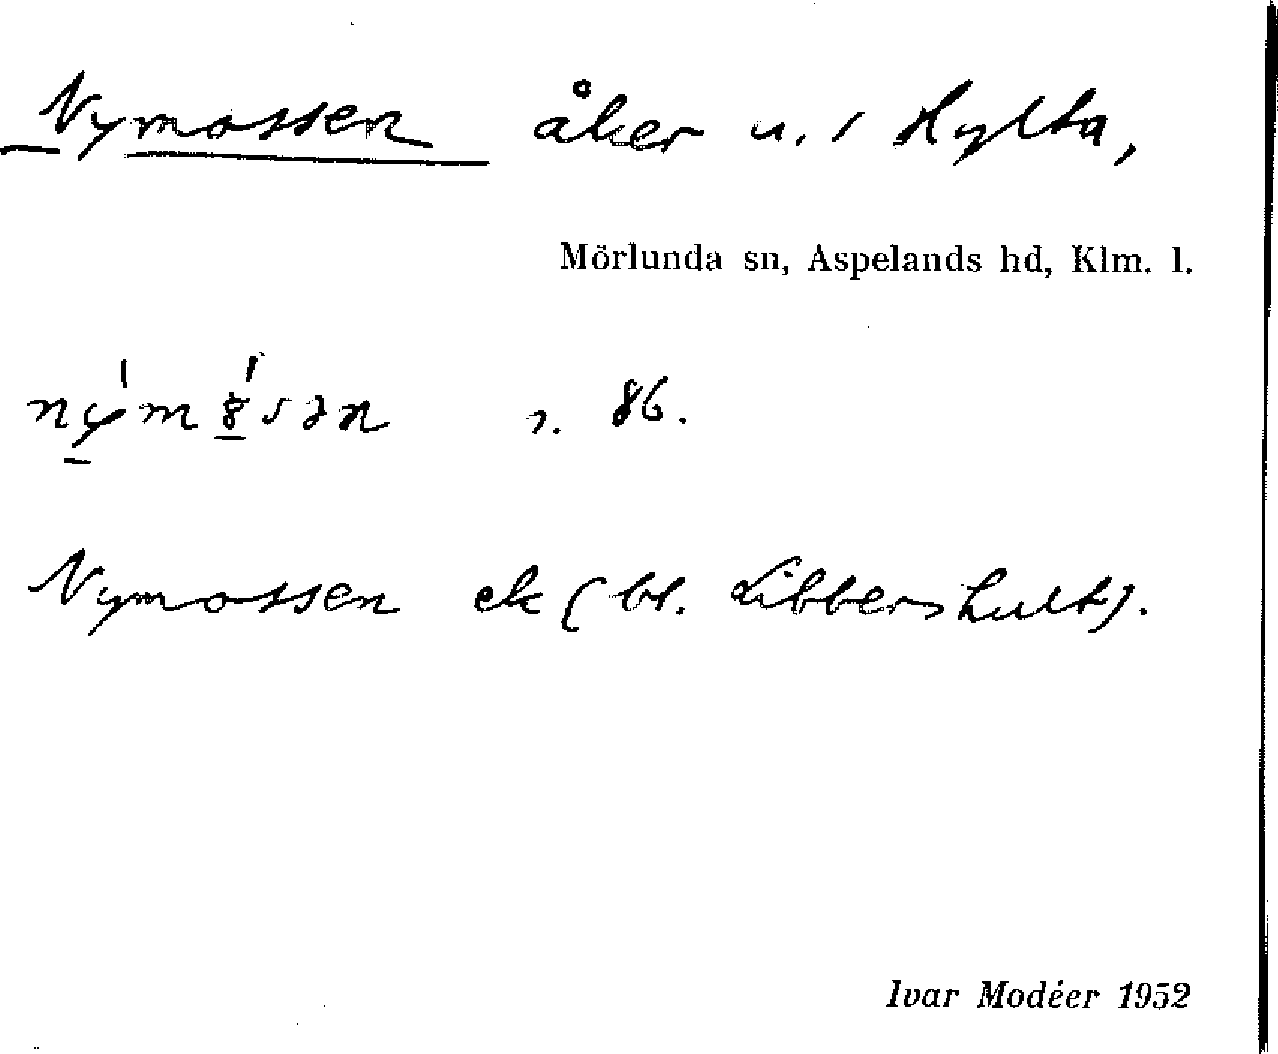 Nymossen åker u. / Hylta,
Mörlunda sn, Aspelands hd, Klm. l.
86.
Nymossen ek (bl. Libbershult).
Ivar Modéer 1952